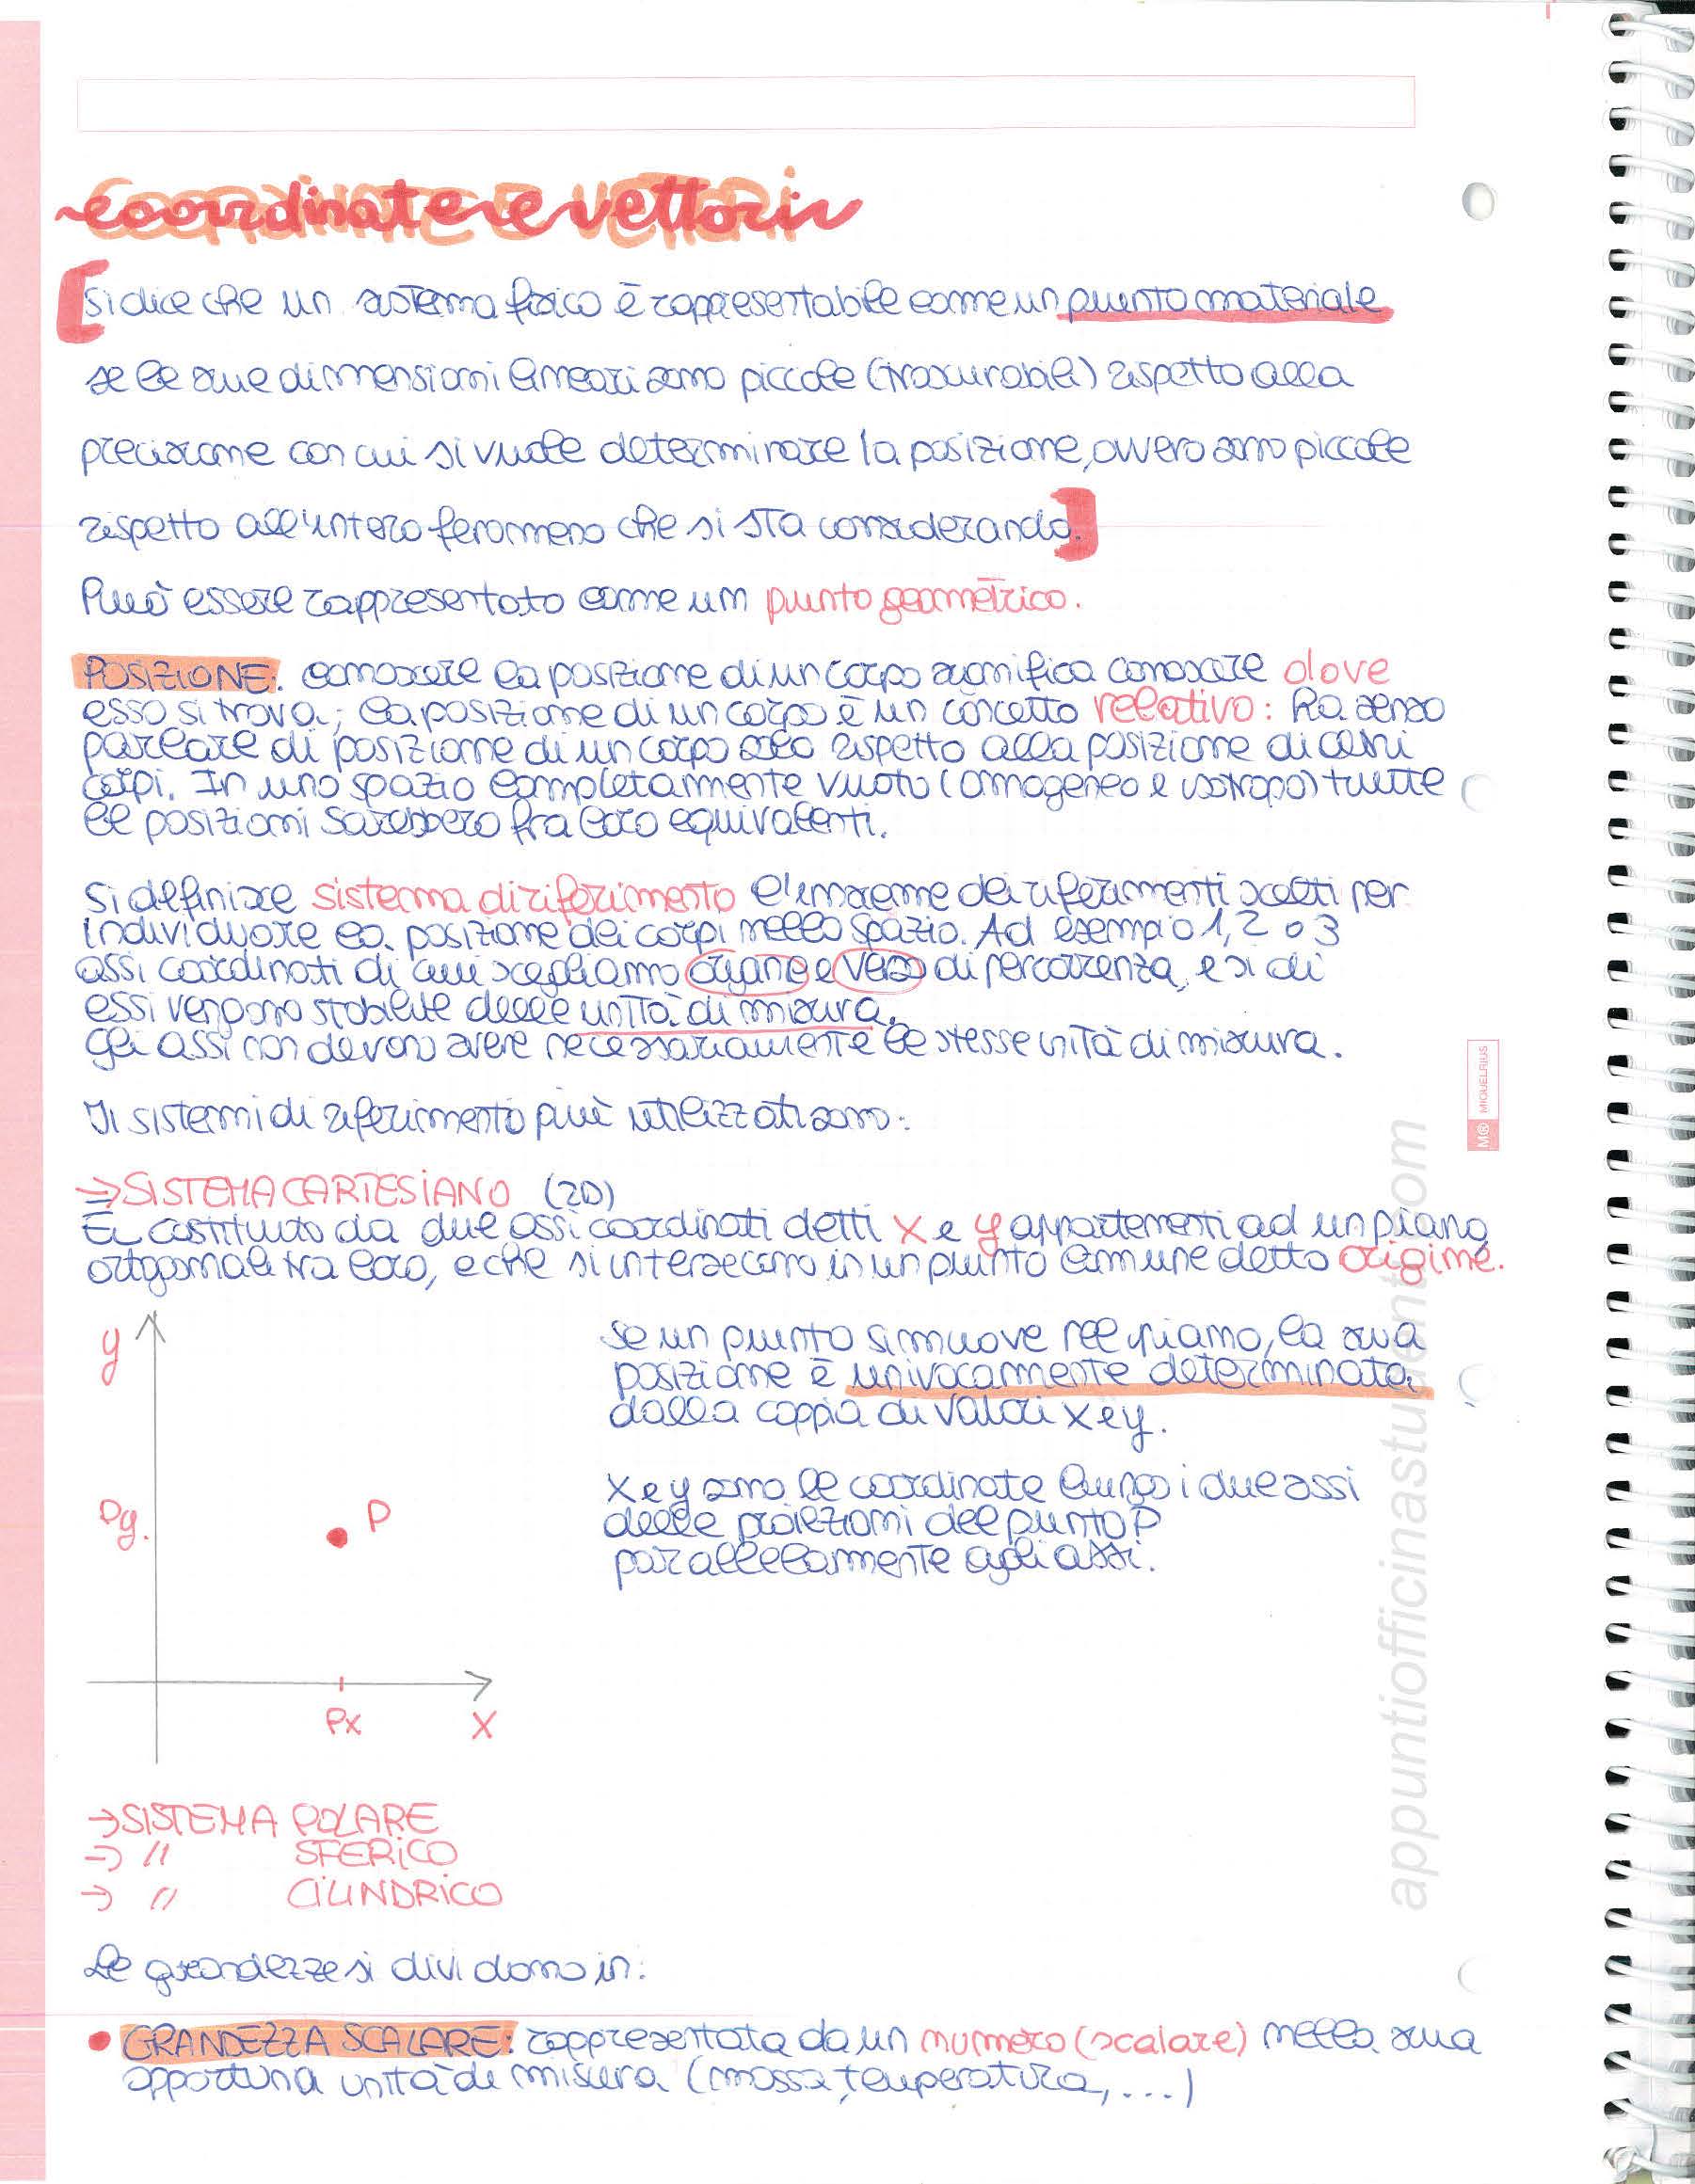 coordinate e vettori
Si dice che un sistema fisico è rappresentabile come un punto materiale
se le sue dimensioni lineari sono piccole (trascurabili) rispetto alla
precisione con cui si vuole determinare la posizione, ovvero sono piccole
rispetto all'intero fenomeno che si sta considerando.
Può essere rappresentato come un punto geometrico.
POSIZIONE: conoscere la posizione di un corpo significa conoscere dove
esso si trova; la posizione di un corpo è un concetto relativo: ha senso
parlare di posizione di un corpo solo rispetto alla posizione di altri
corpi. In uno spazio completamente vuoto (omogeneo e isotropo) tutte
le posizioni sarebbero fra loro equivalenti.
Si definisce sistema di riferimento l'insieme dei riferimenti scelti per
individuare la posizione dei corpi nello spazio. Ad esempio 1, 2 o 3
assi coordinati di cui scegliamo origine e verso di percorrenza, e si di
essi vengono stabilite delle unità di misura.
Gli assi non devono avere necessariamente le stesse unità di misura.
I sistemi di riferimento più utilizzati sono:
→ SISTEMA CARTESIANO (2D)
È costituito da due assi coordinati detti x e y appartenenti ad un piano,
ortogonali tra loro, e che si intersecano in un punto comune detto origine.
y
Se un punto si muove nel piano, la sua
posizione è univocamente determinata
dalla coppia di valori x e y.
x e y sono le coordinate lungo i due assi
delle proiezioni del punto P
parallelamente agli assi.
Py
P
Px
x
→ SISTEMA POLARE
→ " SFERICO
→ " CILINDRICO
Le grandezze si dividono in:
• GRANDEZZA SCALARE: rappresentata da un numero (scalare) nella sua
opportuna unità di misura (massa, temperatura, ...)
MIQUELRIUS
appuntiofficinastudenti.com